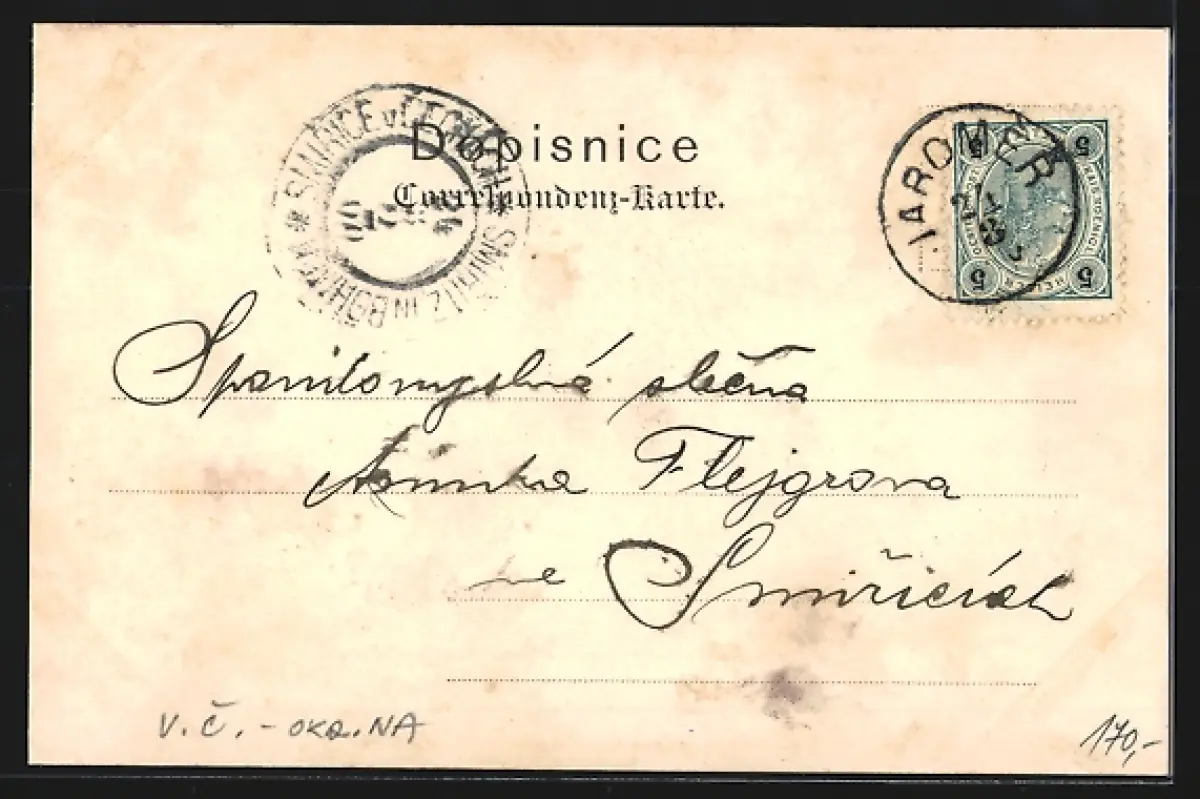 Dopisnice
Correspondenz-Karte.
SMIŘICE v ČECHÁCH * SMIRITZ IN BÖHMEN *
JAROMĚŘ
5 5
5 5
Spanilomyslná slečna
Aninka Flejgrova
ve Smiřicích
V.Č. - OKR. NA
170,-